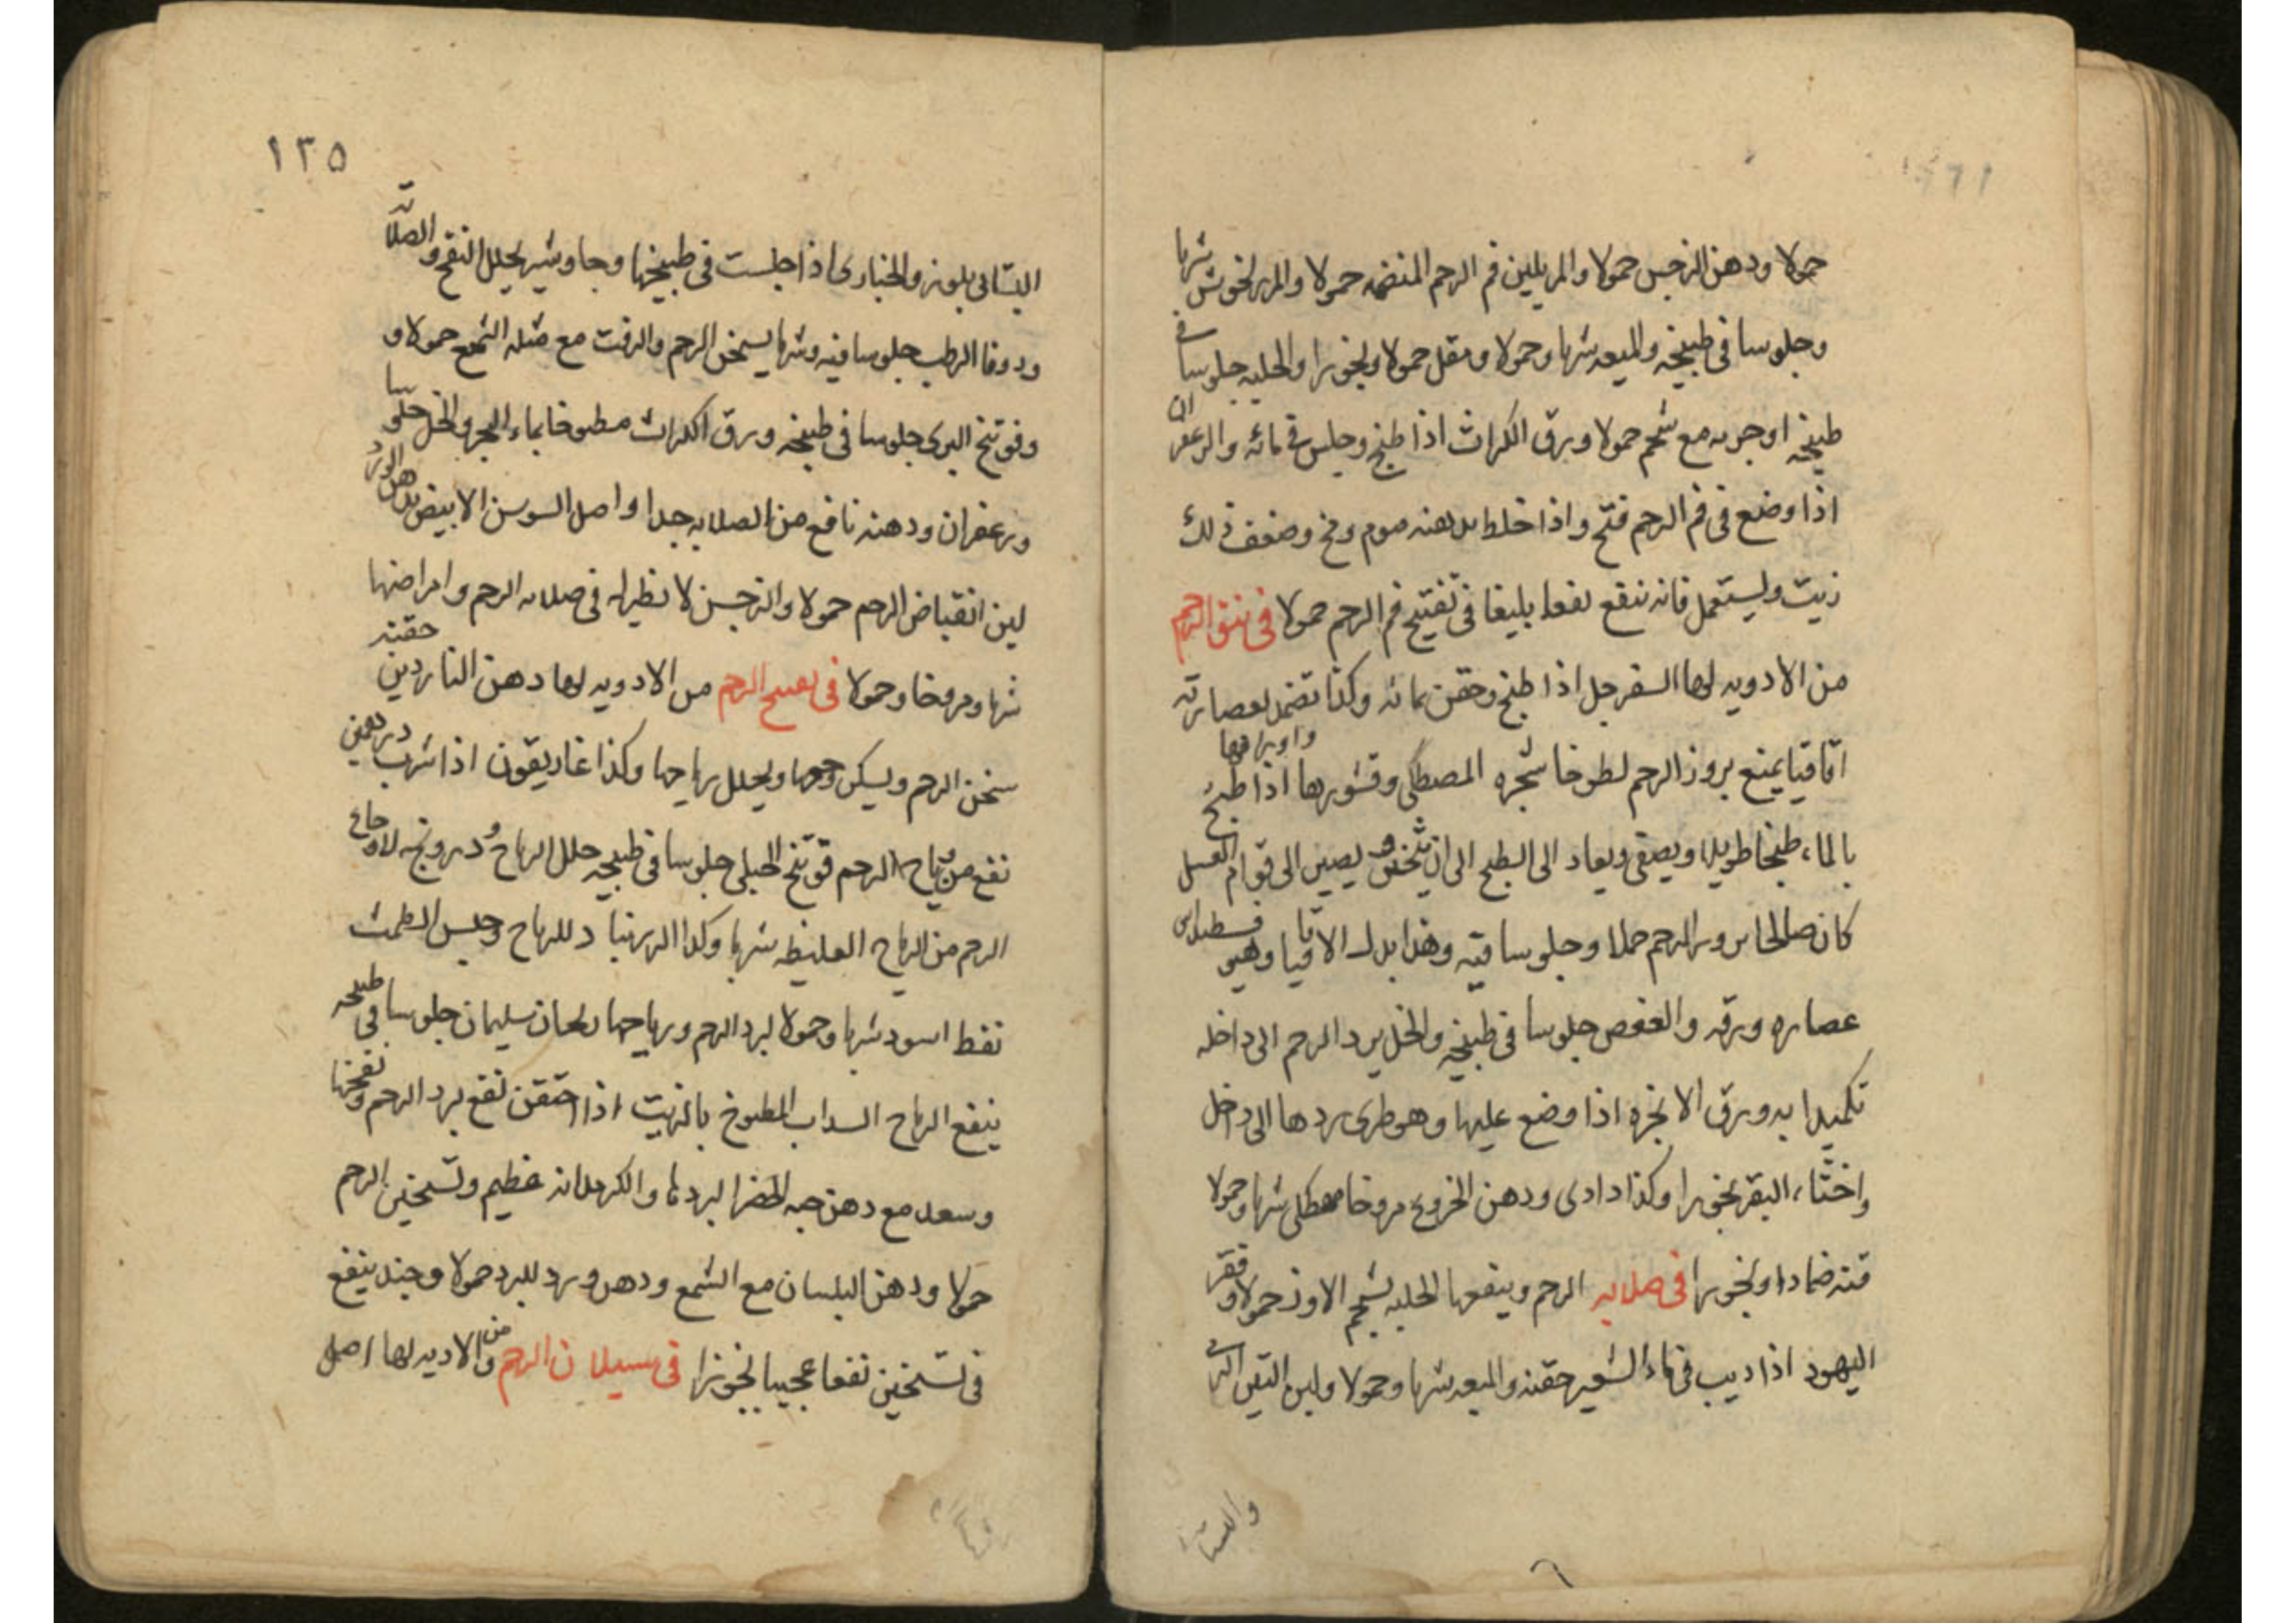 حمولا ودهن النرجس حمولا والمر يلين فم الرحم المنضمه حمولا والمرزنجوش شربا
وجلوسا فى طبيخه والميعه شربا وحمولا ومقل حمولا وبخورا والحلبه جلوسا فى
طبيخه او جربه مع شحم حمولا وورق الكراث اذا طبخ وجلس فى مائه والزعفران
اذا وضع فى فم الرحم فتح واذا خلط بدهنه موم ومخ وضعف ذلك
زيت وليستعمل فانه ينفع نفعا بليغا فى تفتيح فم الرحم حمولا فى نتو الرحم
من الادويه لها السفرجل اذا طبخ وحقن بمائه وكذا تضمد بعصارته
اقاقيا يمنع بروز الرحم لطوخا شجره المصطكى وقشورها واوراقها اذا طبخ
بالماء طبخا طويلا ويصفى ويعاد الى الطبخ الى ان يثخن و يصير الى قوام العسل
كان صالحا لبروز الرحم حملا وجلوسا فيه وهذا بدل الاقاقيا وهيوفسطيداس
عصاره ورقه والعفص جلوسا فى طبيخه والخل يرد الرحم الى داخله
تكميدا به وورق الانجره اذا وضع عليها وهو طرى ردها الى داخل
واخثاء البقر بخورا وكذا دادى ودهن الخروع مروخا مصطكى شربا وحمولا
قنه ضمادا وبخورا فى صلابه الرحم وينفعها الحلبه بشحم الاوز حمولا وقفر
اليهود اذا ديب فى ماء الشعير حقنه والميعه شربا وحمولا ولبن التين البرى
والبستا
١٣٥
البستانى بلوز والخبازى اذا جلست فى طبيخها وجاوشير يحلل النفخ والصلابه
وزوفا الرطب جلوسا فيه وشربا يسخن الرحم والزفت مع مثله الشمع حمولا و
وفوتنج البرى جلوسا فى طبيخه وورق الكراث مطبوخا بماء البحر والخل جلوسا
وزعفران ودهنه نافع من الصلابه جدا واصل السوسن الابيض بدهن الورد
لين انقباض الرحم حمولا والنرجس لا نظير له فى صلابه الرحم وامراضها
شربا ومروخا وحمولا فى نفخ الرحم من الادويه لها دهن الناردين حقنه
سخن الرحم ويسكن وجعها ويحلل رياحها وكذا غاريقون اذا شرب درهمين
نفع من رياح الرحم فوتنج الجبلى جلوسا فى طبيخه حلل الرياح ودرونج لاوجاع
الرحم من الرياح الغليظه شربا وكذا الزرنباد للرياح وحبس الطمث
نفط اسود شربا وحمولا لبرد الرحم ورياحها ريحان سليمان جلوسا فى طبيخه
ينفع الرياح السداب المطبوخ بالزيت اذا احتقن نفع برد الرحم ونفخها
وسعد مع دهن حبه الخضرا لبردها والكرم دانه عظيم وتسخين الرحم
حمولا ودهن البلسان مع الشمع ودهن ورد للبرد حمولا وجند ينفع
فى تسخين نفعا عجيبا بخورا فى سيلان الرحم من الادويه لها اصل